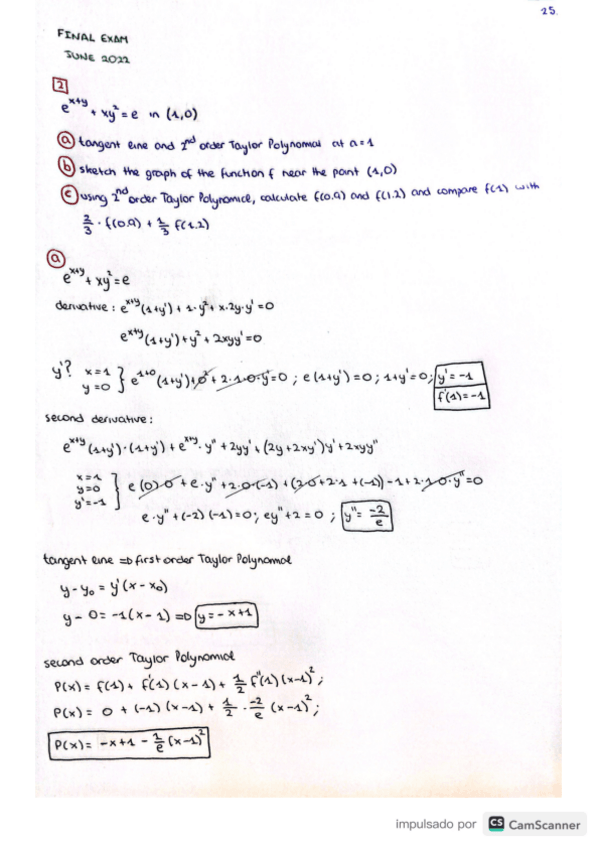 25.
FINAL EXAM
JUNE 2022
2
e^{x+y} + xy² = e in (1,0)
a tangent line and 2nd order Taylor Polynomial at a=1
b sketch the graph of the function f near the point (1,0)
c using 2nd order Taylor Polynomial, calculate f(0.9) and f(1.2) and compare f(1) with
2/3 · f(0.9) + 1/3 f(1.2)
a
e^{x+y} + xy² = e
derivative: e^{x+y}(1+y') + 1·y² + x·2y·y' = 0
e^{x+y}(1+y') + y² + 2xyy' = 0
y'? x=1 y=0 } e^{1+0}(1+y') + 0² + 2·1·0·y' = 0 ; e(1+y') = 0; 1+y' = 0; y' = -1
f'(1) = -1
second derivative:
e^{x+y}(1+y')·(1+y') + e^{x+y}·y'' + 2yy' + (2y+2xy')y' + 2xyy''
x=1 y=0 y'=-1 } e(0)·0 + e·y'' + 2·0·(-1) + (2·0+2·1+(-1))-1 + 2·1·0·y'' = 0
e·y'' + (-2)(-1) = 0; ey'' + 2 = 0 ; y'' = -2/e
tangent line ⇒ first order Taylor Polynomial
y - y₀ = y'(x - x₀)
y - 0 = -1(x - 1) ⇒ y = -x+1
second order Taylor Polynomial
P(x) = f(1) + f'(1)(x-1) + 1/2 f''(1)(x-1)²;
P(x) = 0 + (-1)(x-1) + 1/2 · -2/e (x-1)²;
P(x) = -x+1 - 1/e (x-1)²
impulsado por CS CamScanner